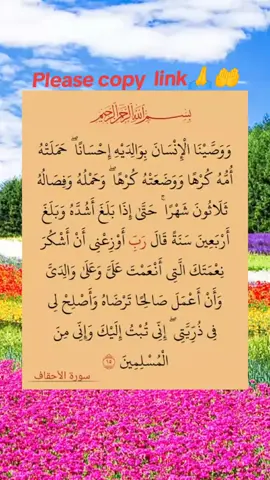 Please copy link 🙏 🤲
بِسْمِ اللَّهِ الرَّحْمَٰنِ الرَّحِيمِ
وَوَصَّيْنَا الْإِنْسَانَ بِوَالِدَيْهِ إِحْسَانًا ۖ حَمَلَتْهُ
أُمُّهُ كُرْهًا وَوَضَعَتْهُ كُرْهًا ۖ وَحَمْلُهُ وَفِصَالُهُ
ثَلَاثُونَ شَهْرًا ۚ حَتَّىٰ إِذَا بَلَغَ أَشُدَّهُ وَبَلَغَ
أَرْبَعِينَ سَنَةً قَالَ رَبِّ أَوْزِعْنِي أَنْ أَشْكُرَ
نِعْمَتَكَ الَّتِي أَنْعَمْتَ عَلَيَّ وَعَلَىٰ وَالِدَيَّ
وَأَنْ أَعْمَلَ صَالِحًا تَرْضَاهُ وَأَصْلِحْ لِي
فِي ذُرِّيَّتِي ۖ إِنِّي تُبْتُ إِلَيْكَ وَإِنِّي مِنَ
الْمُسْلِمِينَ ١٥
سورة الأحقاف